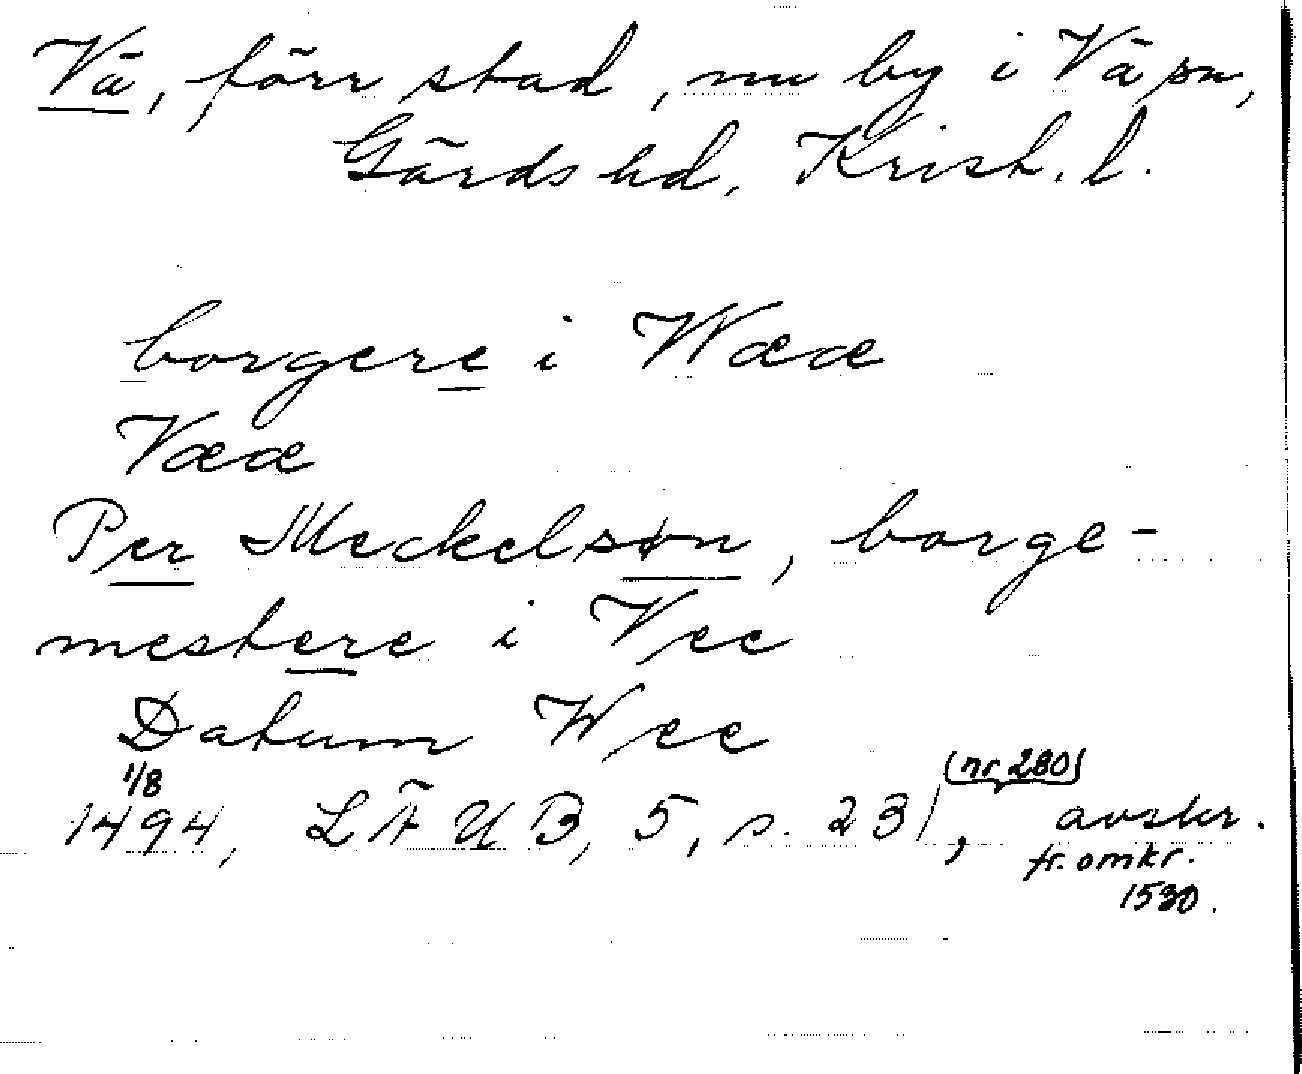 Vä, förr stad, nu by i Vä sn,
Gärds hd, Krist. l.
borgere i Wææ
Vææ
Per Meckelsøn, borge-
mestere i Vee
Datum Wee
1/8 (nr 280)
1494, LÄUB, 5, s. 231, avskr.
fr. omkr.
1530.